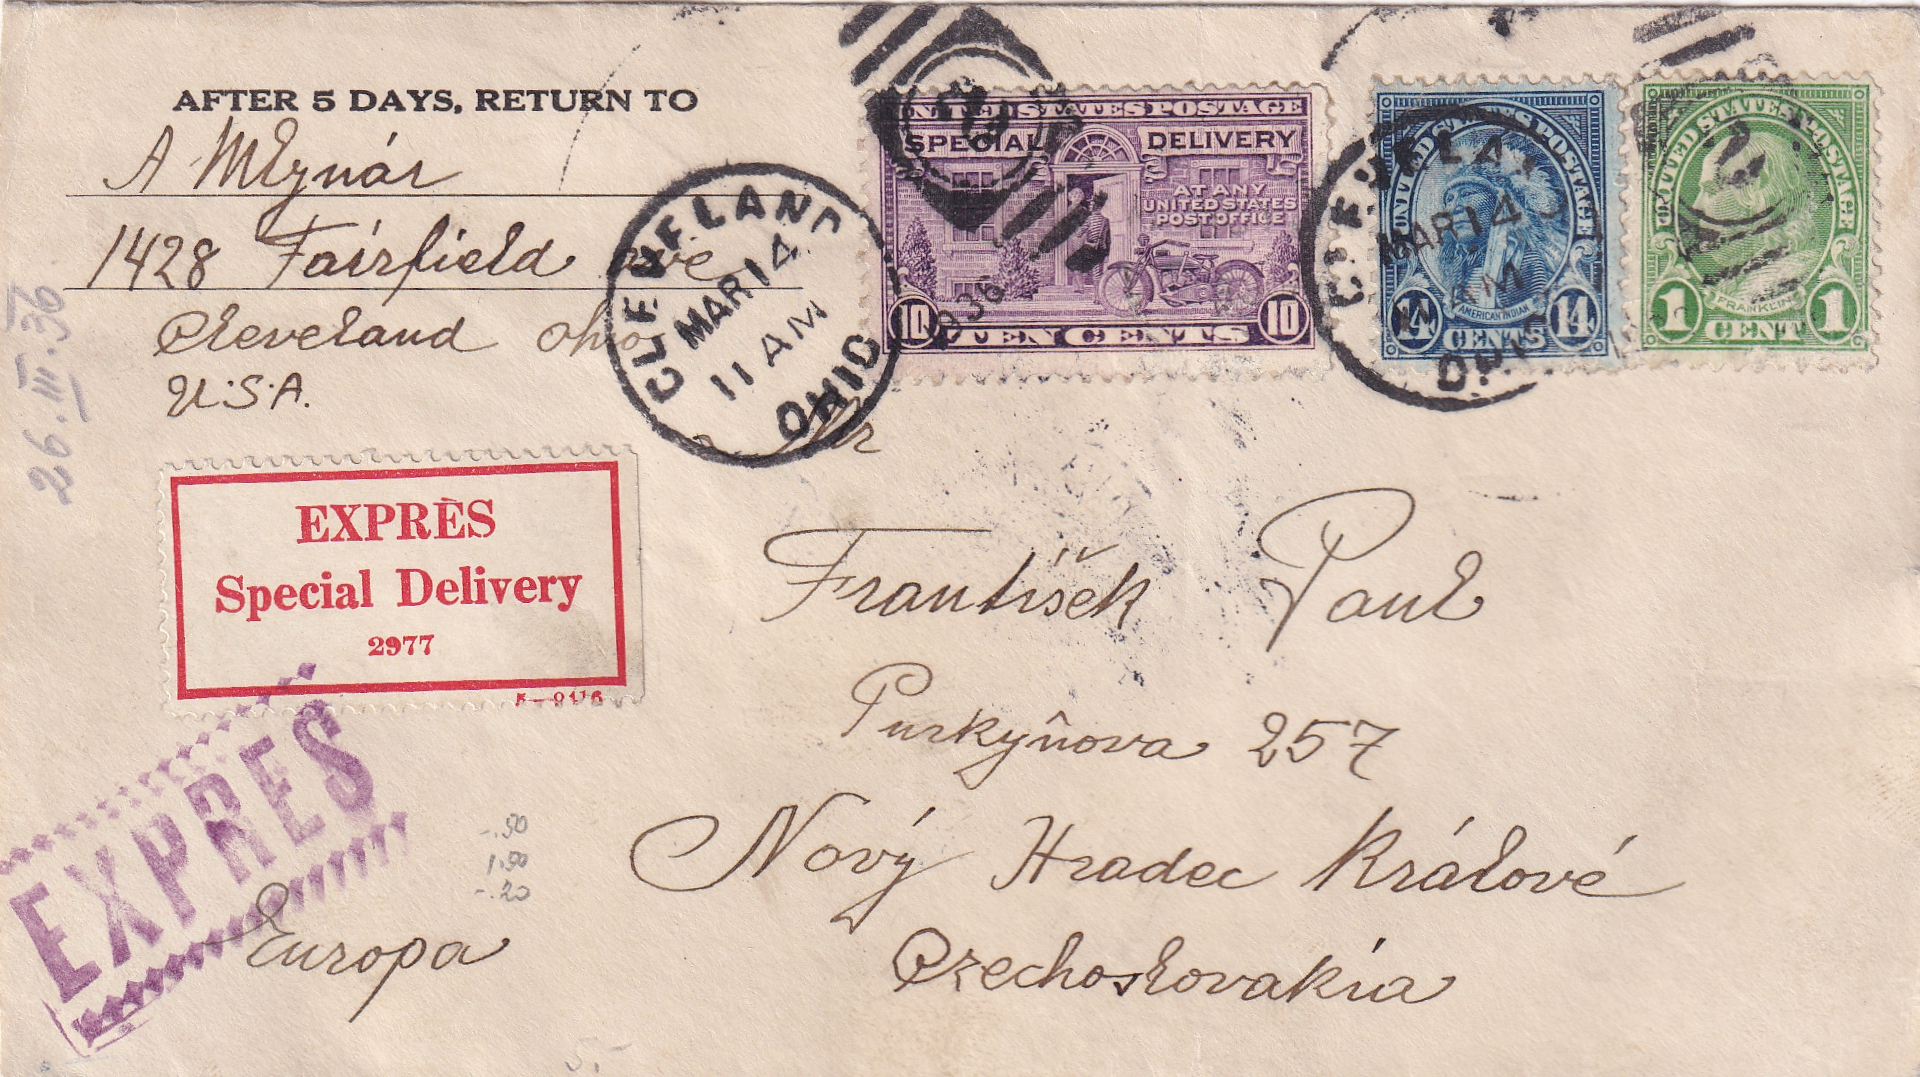 AFTER 5 DAYS, RETURN TO
A Mlynár
1428 Fairfield ave
Cleveland Ohio
U.S.A.
26.III.36
CLEVELAND
MAR 14
11 AM
OHIO
1936
2
UNITED STATES POSTAGE
SPECIAL DELIVERY
AT ANY
UNITED STATES
POST OFFICE
10 TEN CENTS 10
CLEVELAND
MAR 14
11 AM
OHIO
UNITED STATES POSTAGE
AMERICAN INDIAN
14 CENTS 14
2
UNITED STATES POSTAGE
FRANKLIN
1 CENT 1
EXPRÈS
Special Delivery
2977
Mr
František Paul
Purkyňova 257
Nový Hradec Králové
Czechoslovakia
EXPRES
Europa
-.50
1.50
-.20
5.-